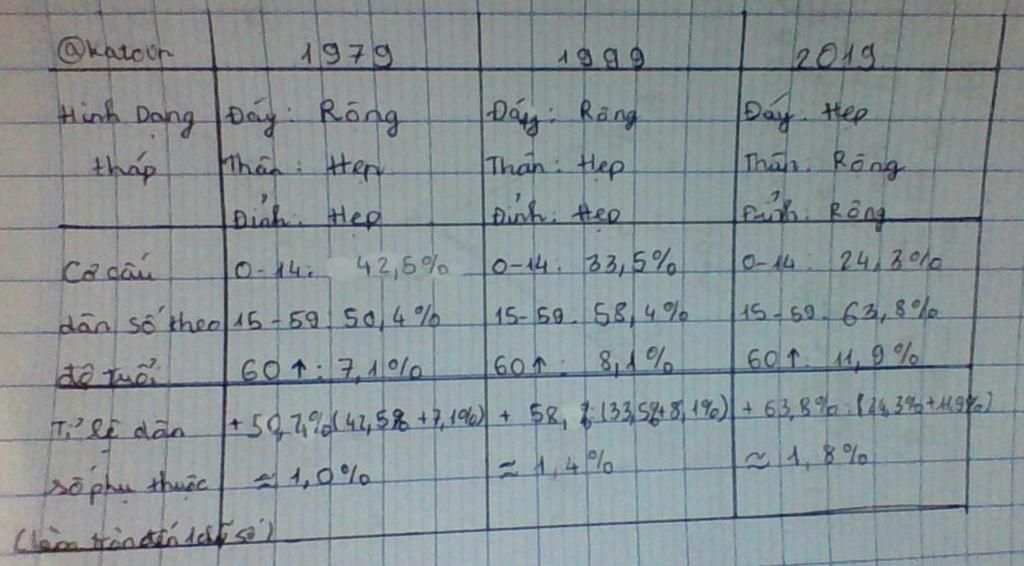 @katoon 1979 1999 2019
Hình Dạng Đáy: Rộng Đáy: Rộng Đáy: Hẹp
tháp Thân: Hẹp Thân: Hẹp Thân: Rộng
Đỉnh: Hẹp Đỉnh: Hẹp Đỉnh: Rộng
Cơ cấu 0-14: 42,5% 0-14: 33,5% 0-14: 24,3%
dân số theo 15-59: 50,4% 15-59: 58,4% 15-59: 63,8%
độ tuổi 60↑: 7,1% 60↑: 8,1% 60↑: 11,9%
Tỉ lệ dân (42,5% + 7,1%) + 58, (33,5%+8,1%) + 63,8%:(24,3%+11,9%)
số phụ thuộc ≈ 1,0% ≈ 1,4% ≈ 1,8%
(làm tròn đến 1 chữ số)